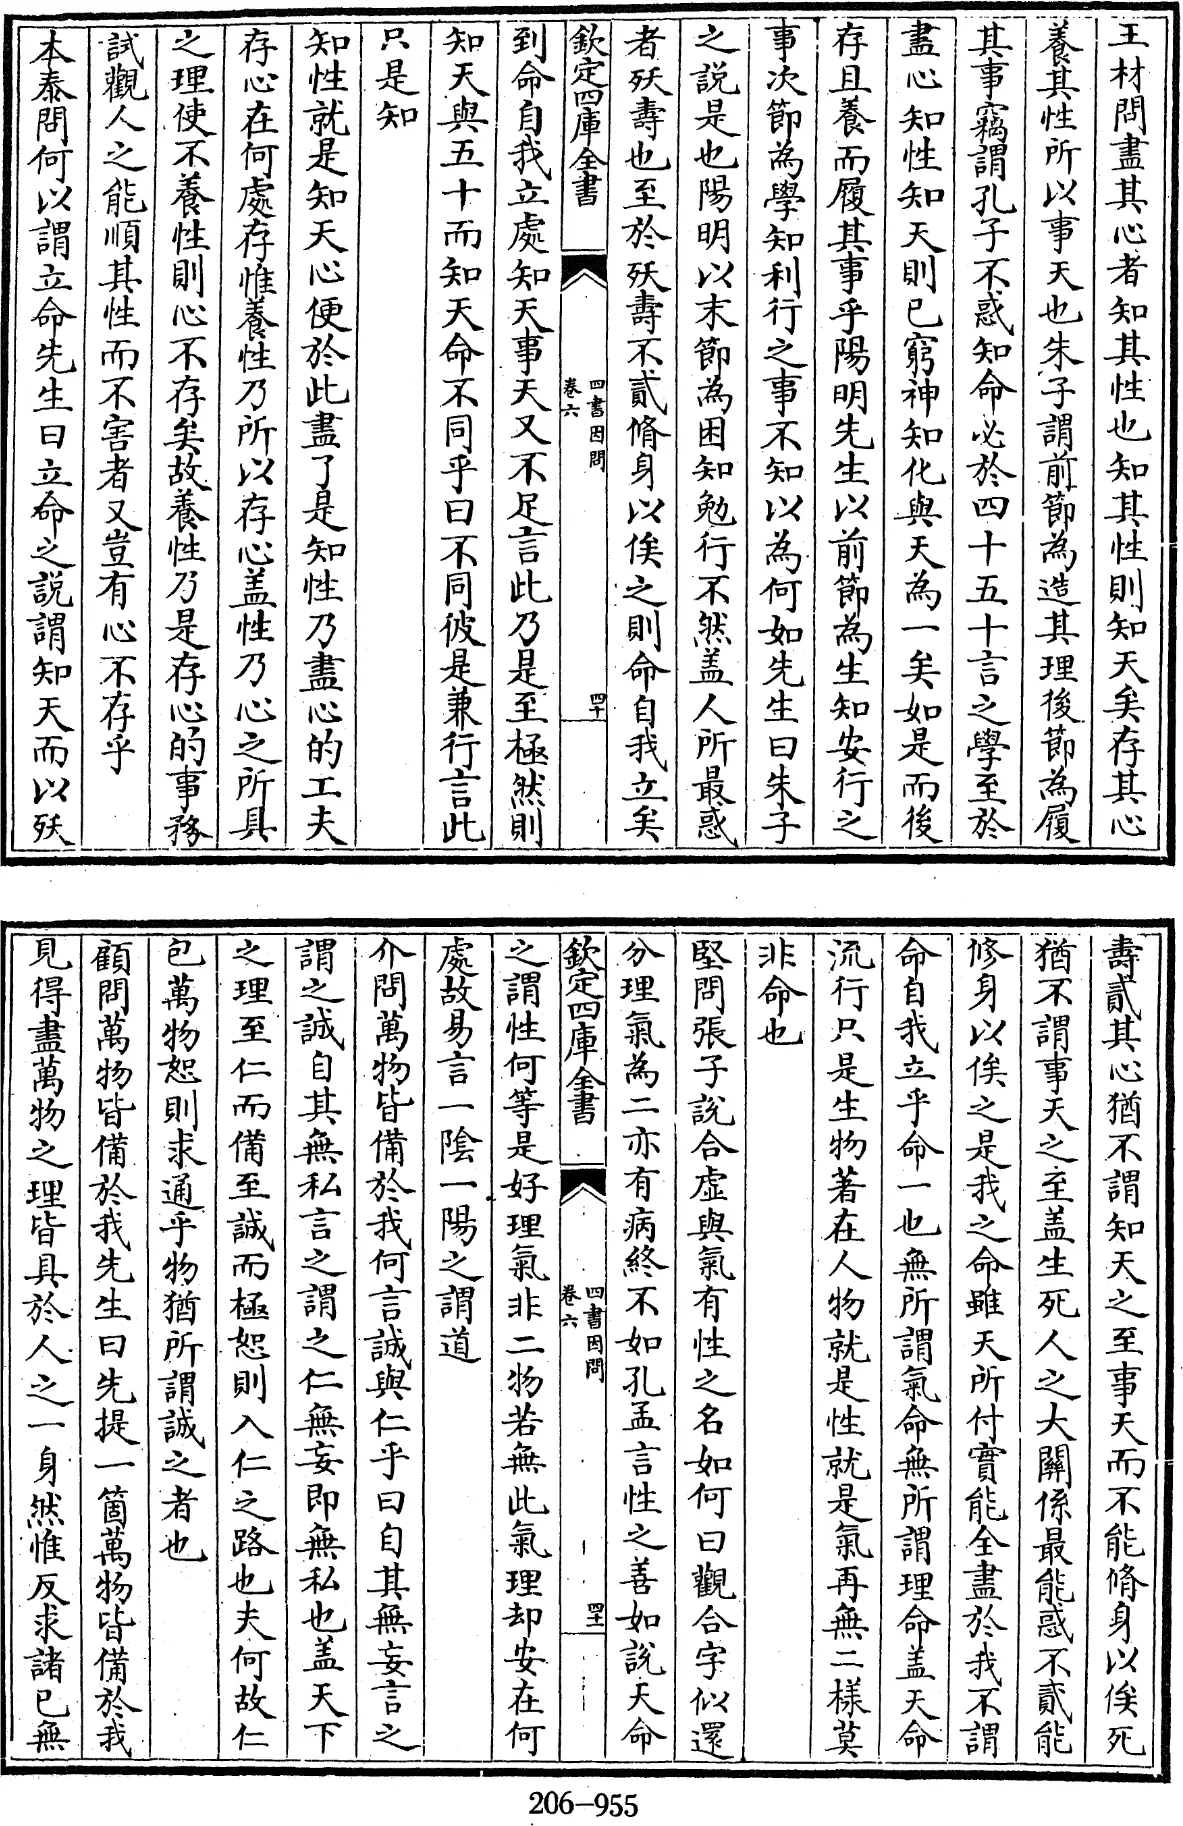 王材問盡其心者知其性也知其性則知天矣存其心
養其性所以事天也朱子謂前節為造其理後節為履
其事竊謂孔子不惑知命必於四十五十言之學至於
盡心知性知天則已窮神知化與天為一矣如是而後
存且養而履其事乎陽明先生以前節為生知安行之
事次節為學知利行之事不知以為何如先生曰朱子
之說是也陽明以末節為困知勉行不然盖人所最惑
者殀壽也至於殀壽不貳脩身以俟之則命自我立矣
欽定四庫全書
四書因問
卷六
四十
到命自我立處知天事天又不足言此乃是至極然則
知天與五十而知天命不同乎曰不同彼是兼行言此
只是知
知性就是知天心便於此盡了是知性乃盡心的工夫
存心在何處存惟養性乃所以存心盖性乃心之所具
之理使不養性則心不存矣故養性乃是存心的事務
試觀人之能順其性而不害者又豈有心不存乎
本泰問何以謂立命先生曰立命之說謂知天而以殀
壽貳其心猶不謂知天之至事天而不能脩身以俟死
猶不謂事天之至盖生死人之大關係最能惑不貳能
修身以俟之是我之命雖天所付實能全盡於我不謂
命自我立乎命一也無所謂氣命無所謂理命盖天命
流行只是生物著在人物就是性就是氣再無二樣莫
非命也
堅問張子說合虛與氣有性之名如何曰觀合字似還
分理氣為二亦有病終不如孔孟言性之善如說天命
欽定四庫全書
四書因問
卷六
四十一
之謂性何等是好理氣非二物若無此氣理却安在何
處故易言一陰一陽之謂道
介問萬物皆備於我何言誠與仁乎曰自其無妄言之
謂之誠自其無私言之謂之仁無妄即無私也盖天下
之理至仁而備至誠而極恕則入仁之路也夫何故仁
包萬物恕則求通乎物猶所謂誠之者也
顧問萬物皆備於我先生曰先提一箇萬物皆備於我
見得盡萬物之理皆具於人之一身然惟反求諸已無
206-955